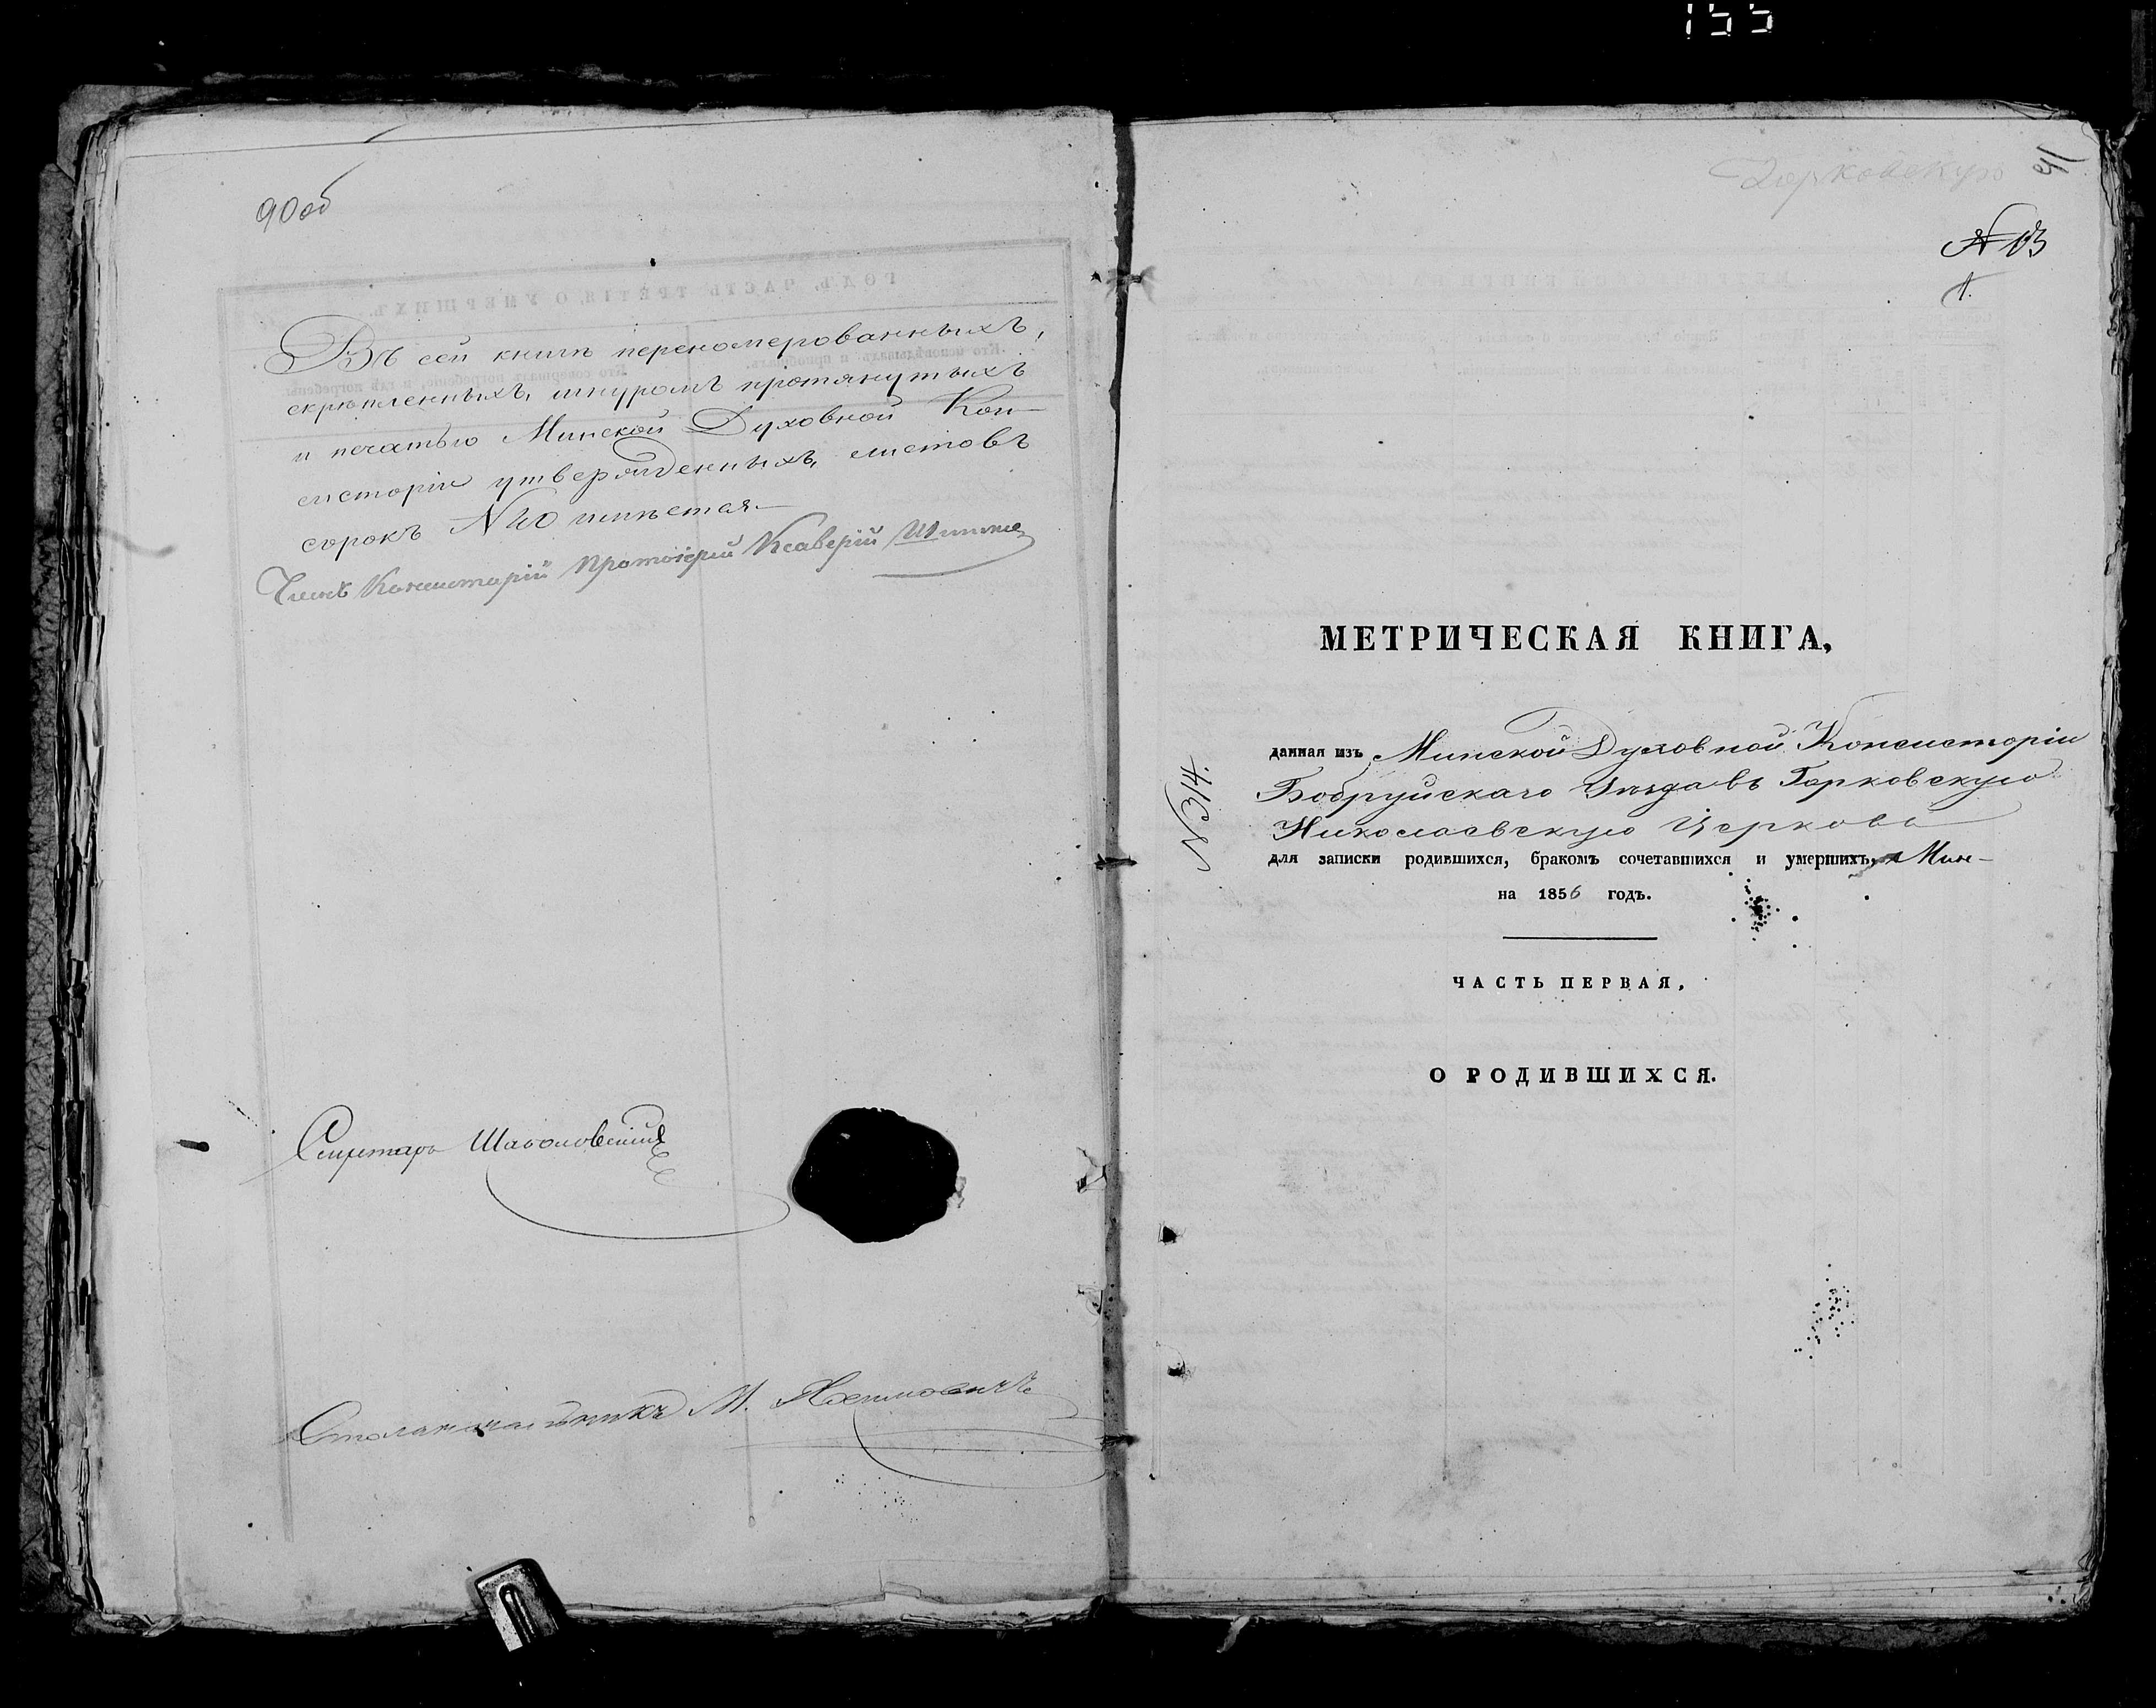 155
90об
Въ сей книгѣ переномерованныхъ,
скрѣпленныхъ, шнуромъ протянутыхъ
и печатью Минской Духовной Кон-
систоріи утвержденныхъ, листовъ
сорокъ N 40 штъ
Членъ Консисторіи Протоіерей Ксаверій
Секретарь
Столоначальникъ М.
Горковскую
91
N 13
1.
МЕТРИЧЕСКАЯ КНИГА,
данная изъ Минской Духовной Консисторіи
Бобруйскаго Уѣзда въ Горковскую
Николаевскую Церковь
для записки родившихся, бракомъ сочетавшихся и умершихъ, Мин-
на 1856 годъ.
N 314
ЧАСТЬ ПЕРВАЯ,
О РОДИВШИХСЯ.